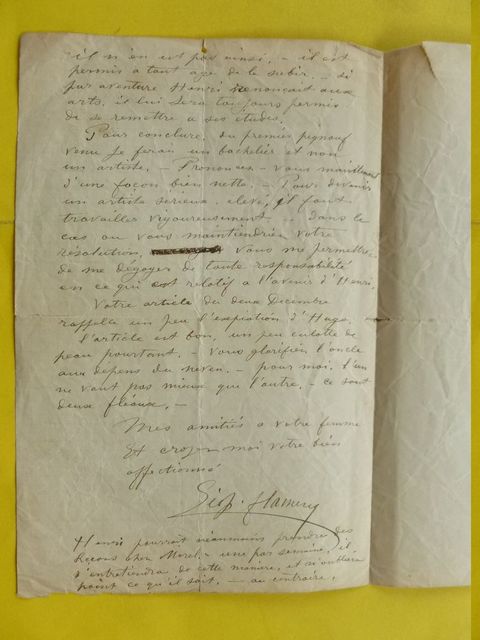 il n'en est pas ainsi, — il est
permis à tout age de le subir. — Si
par aventure Henri renoncait aux
arts, il lui sera toujours permis
de se remettre a ses études.
Pour conclure, du premier pignouf
venu je ferai un bachelier et non
un artiste. — Prononcez-vous maintenant
d'une façon bien nette. — Pour devenir
un artiste serieux, elevé, il faut
travailler vigoureusement. — Dans le
cas ou vous maintiendriez votre
résolution, vous me permettrez
de me dégager de toute responsabilité
en ce qui est relatif a l'avenir d'Henri.
Votre article du deux Decembre
rappelle un peu l'expiation d'Hugo.
l'article est bon, un peu culotte de
peau pourtant. — Vous glorifiez l'oncle
aux depens du neveu. — pour moi, l'un
ne vaut pas mieux que l'autre. — ce sont
deux fléaux. —
Mes amitiés a votre femme
Et croyez moi votre bien
affectionné
Henri pourrait néanmoins prendre des
leçons chez Morel, — une par semaine, il
s'entretiendra de cette manière, et n'oubliera
point ce qu'il sait. — au contraire.